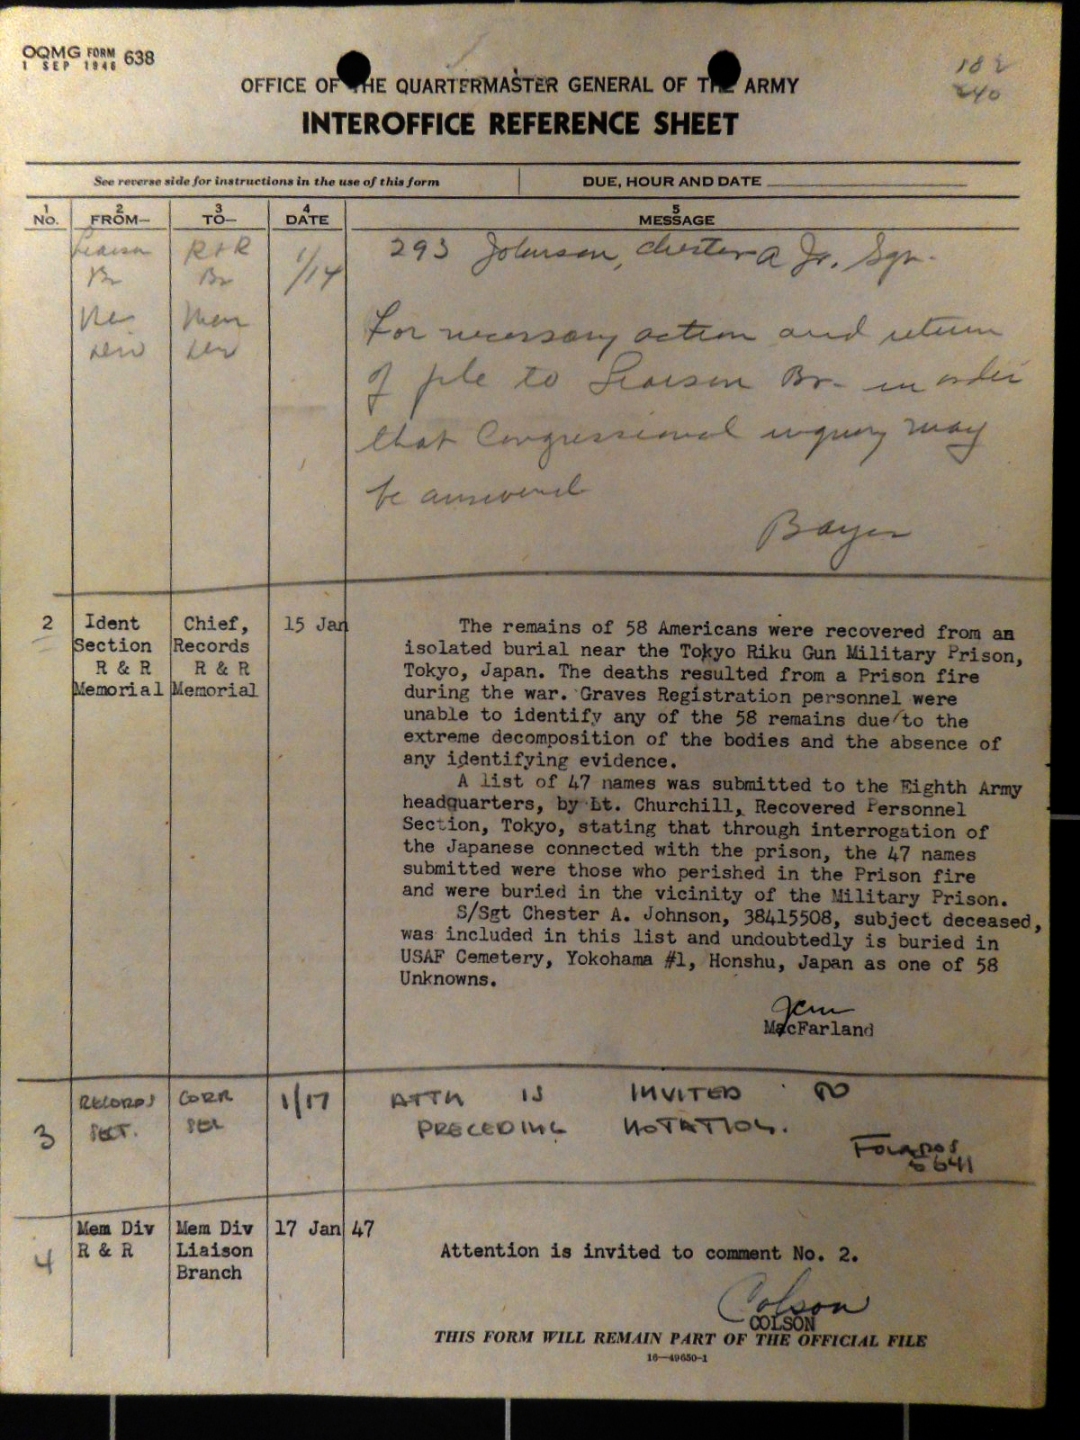 OQMG FORM 638
1 SEP 1946
OFFICE OF THE QUARTERMASTER GENERAL OF THE ARMY
INTEROFFICE REFERENCE SHEET
See reverse side for instructions in the use of this form
DUE, HOUR AND DATE
1 NO.
2 FROM—
3 TO—
4 DATE
5 MESSAGE
Liaison Br
R & R Br
1/14
293 Johnson, Chester A Jr. Sgt.
Mem Div
For necessary action and return
of file to Liaison Br. in order
that Congressional inquiry may
be answered
Bayer
2
Ident
Section
R & R
Memorial
Chief,
Records
R & R
Memorial
15 Jan
The remains of 58 Americans were recovered from an
isolated burial near the Tokyo Riku Gun Military Prison,
Tokyo, Japan. The deaths resulted from a Prison fire
during the war. Graves Registration personnel were
unable to identify any of the 58 remains due to the
extreme decomposition of the bodies and the absence of
any identifying evidence.
A list of 47 names was submitted to the Eighth Army
headquarters, by Lt. Churchill, Recovered Personnel
Section, Tokyo, stating that through interrogation of
the Japanese connected with the prison, the 47 names
submitted were those who perished in the Prison fire
and were buried in the vicinity of the Military Prison.
S/Sgt Chester A. Johnson, 38415508, subject deceased,
was included in this list and undoubtedly is buried in
USAF Cemetery, Yokohama #1, Honshu, Japan as one of 58
Unknowns.
MacFarland
3
RECORDS
SECT.
CORR
SEC
1/17
ATTN IS INVITED TO
PRECEDING NOTATION.
4
Mem Div
R & R
Mem Div
Liaison
Branch
17 Jan 47
Attention is invited to comment No. 2.
Colson
COLSON
THIS FORM WILL REMAIN PART OF THE OFFICIAL FILE
16—49650-1